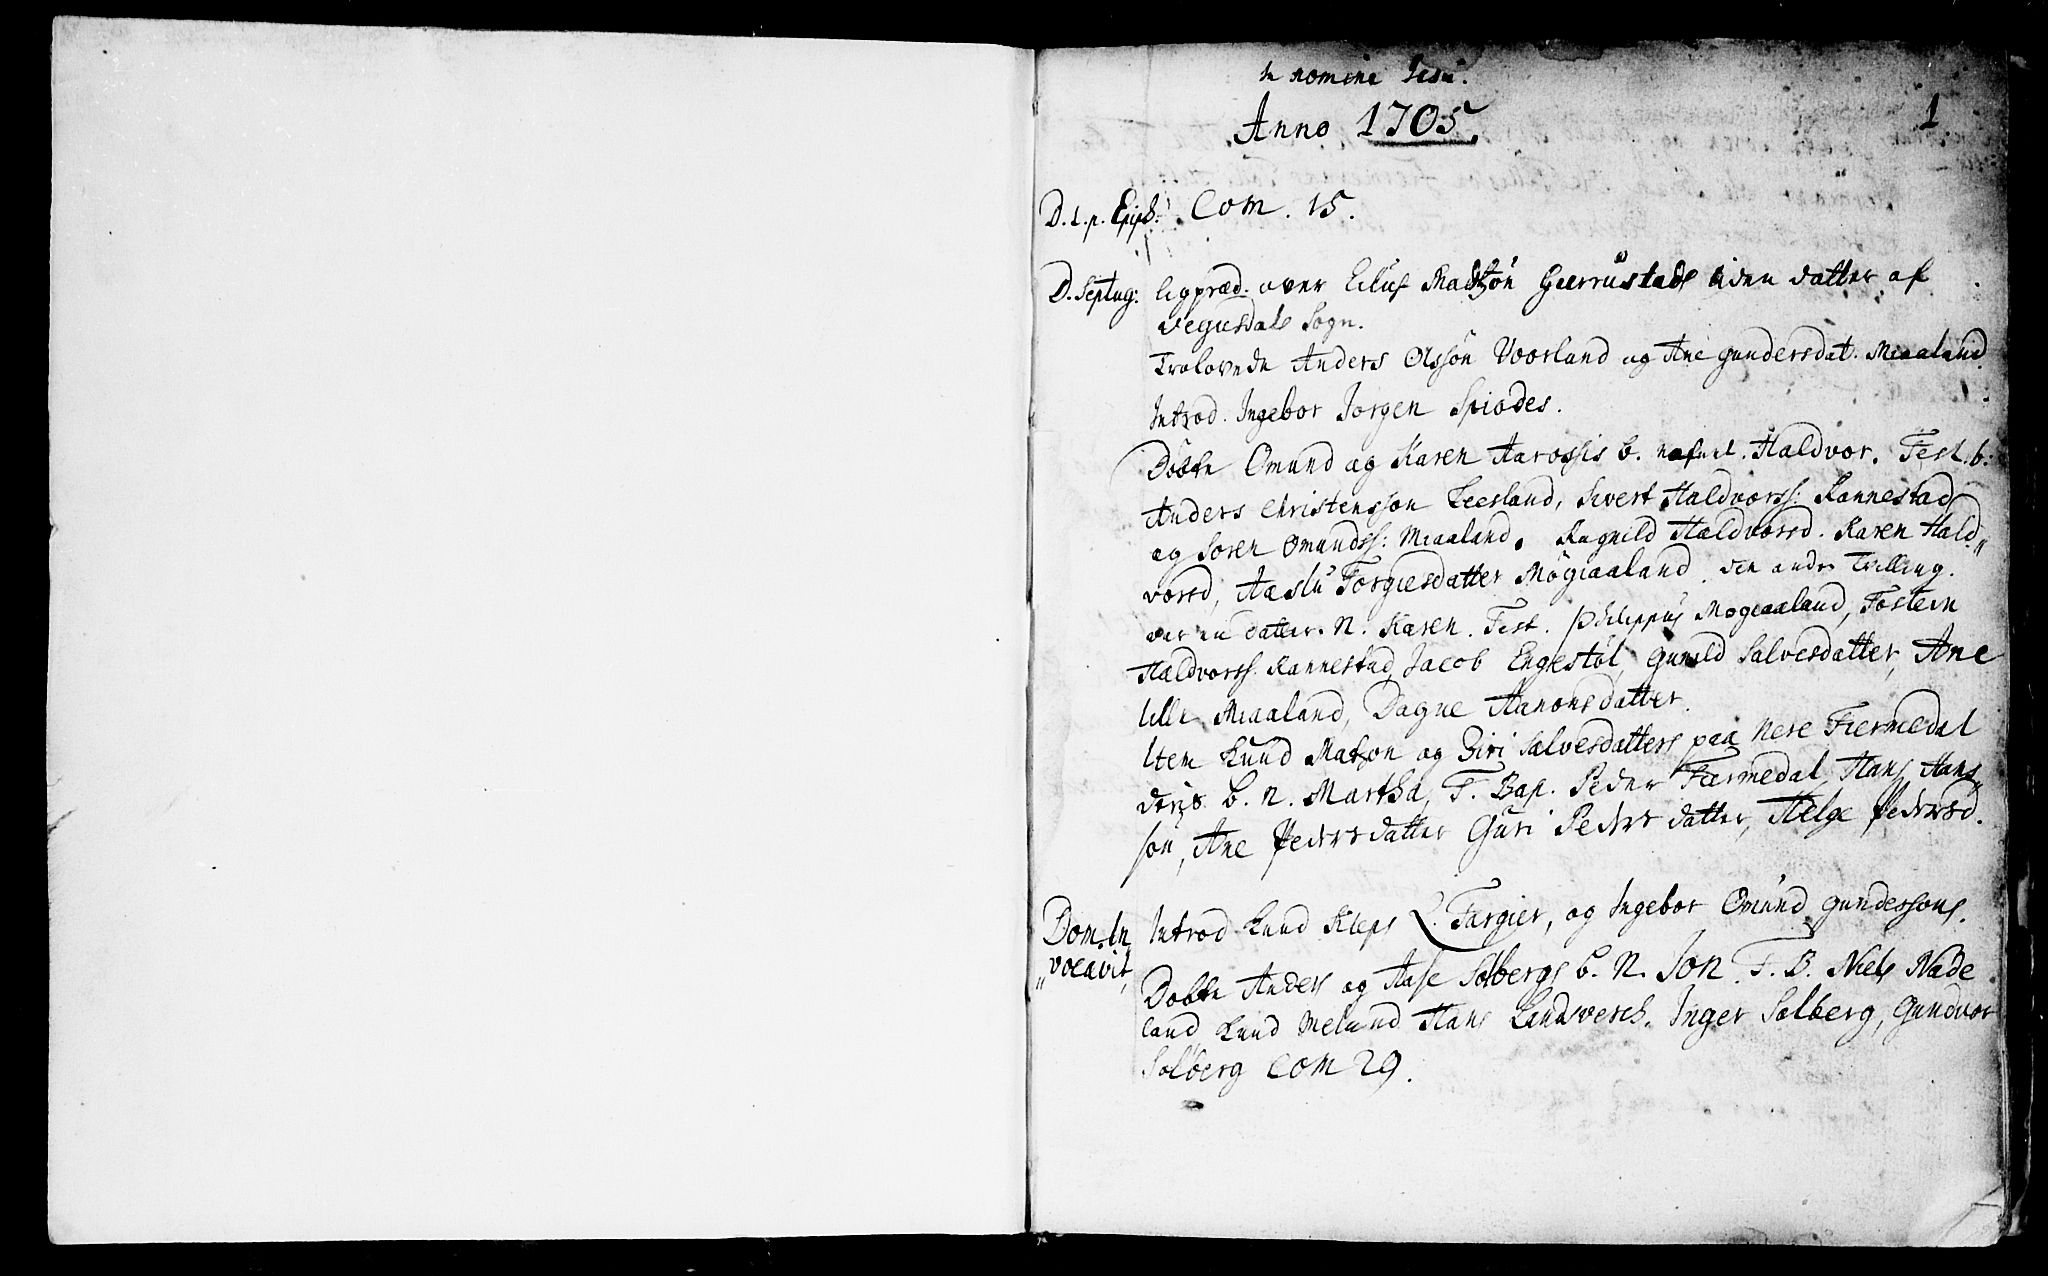 In nomine Jesu.
Anno 1705.
1
D. 1. p. Epiph: Com. 15.
D. Septug: ligpræd. over Eluf Madtzøn Gierrustads liden datter af
Vegusdals Sogn.
Trolovede Anders Olsøn Voorland og Ane gundersdat. Miaaland.
Introd. Ingebor Jorgen Spiodes.
Døbte Omund og Karen Aarossis b. nafnl. Haldvor. Test. b.
Anders Christensson Leesland, Sivert Haldvorss: Rannestad
og Soren Omundss: Miaaland. Ragnild Haldvorsd. Karen Hald„
vorsd, Aaslu Torgiesdatter Mogiaaland. den andr Tvilling.
var en datter. N. Karen. Test. Philippus Mogiaaland, Tostein
Haldvorss. Rannestad, Jacob Engestøl, Gunild Salvesdatter, Ane
lille Miaaland, Dagne Aanonsdatter.
Item Knud Matson og Siri Salvesdatters paa Nere Fiermedal
deris b. n. Martha, T. Bap. Peder Færmedal, Hans Hans„
søn, Ane Pedersdatter Guri Pedersdatter, Helge Pedersd.
Dom. In„ Introd Knud Kleps Q. Targier, og Ingebor Omund gundersons.
„vocavit, Dobte Anders og Aase Solbergs b. N. Jon. F. B. Niels Nade
land, Knud Meland Hans Landverch. Inger Solberg, Gundvor
Solberg Com 29.